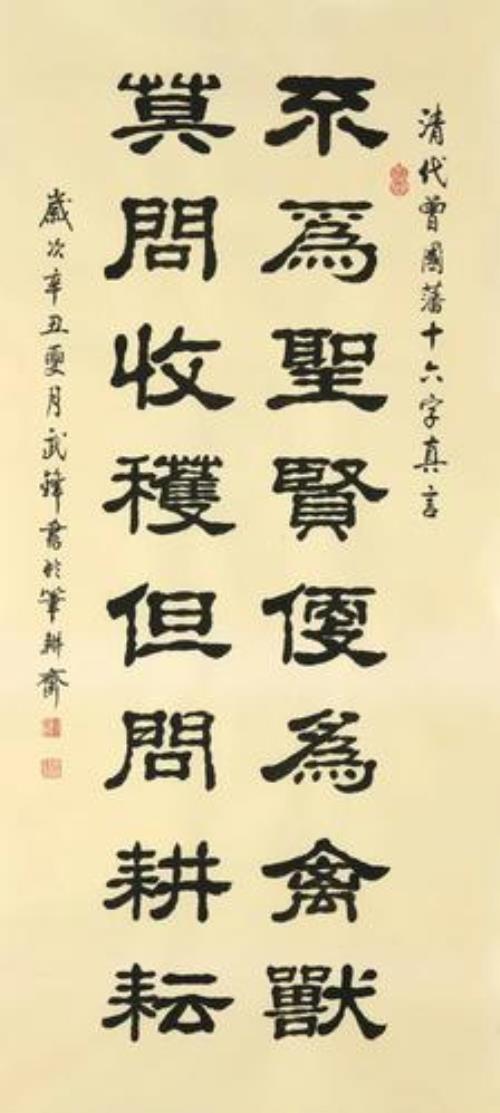 清代曾國藩十六字真言
不爲聖賢便爲禽獸
莫問收穫但問耕耘
歲次辛丑夏月武鋒書於筆耕齋